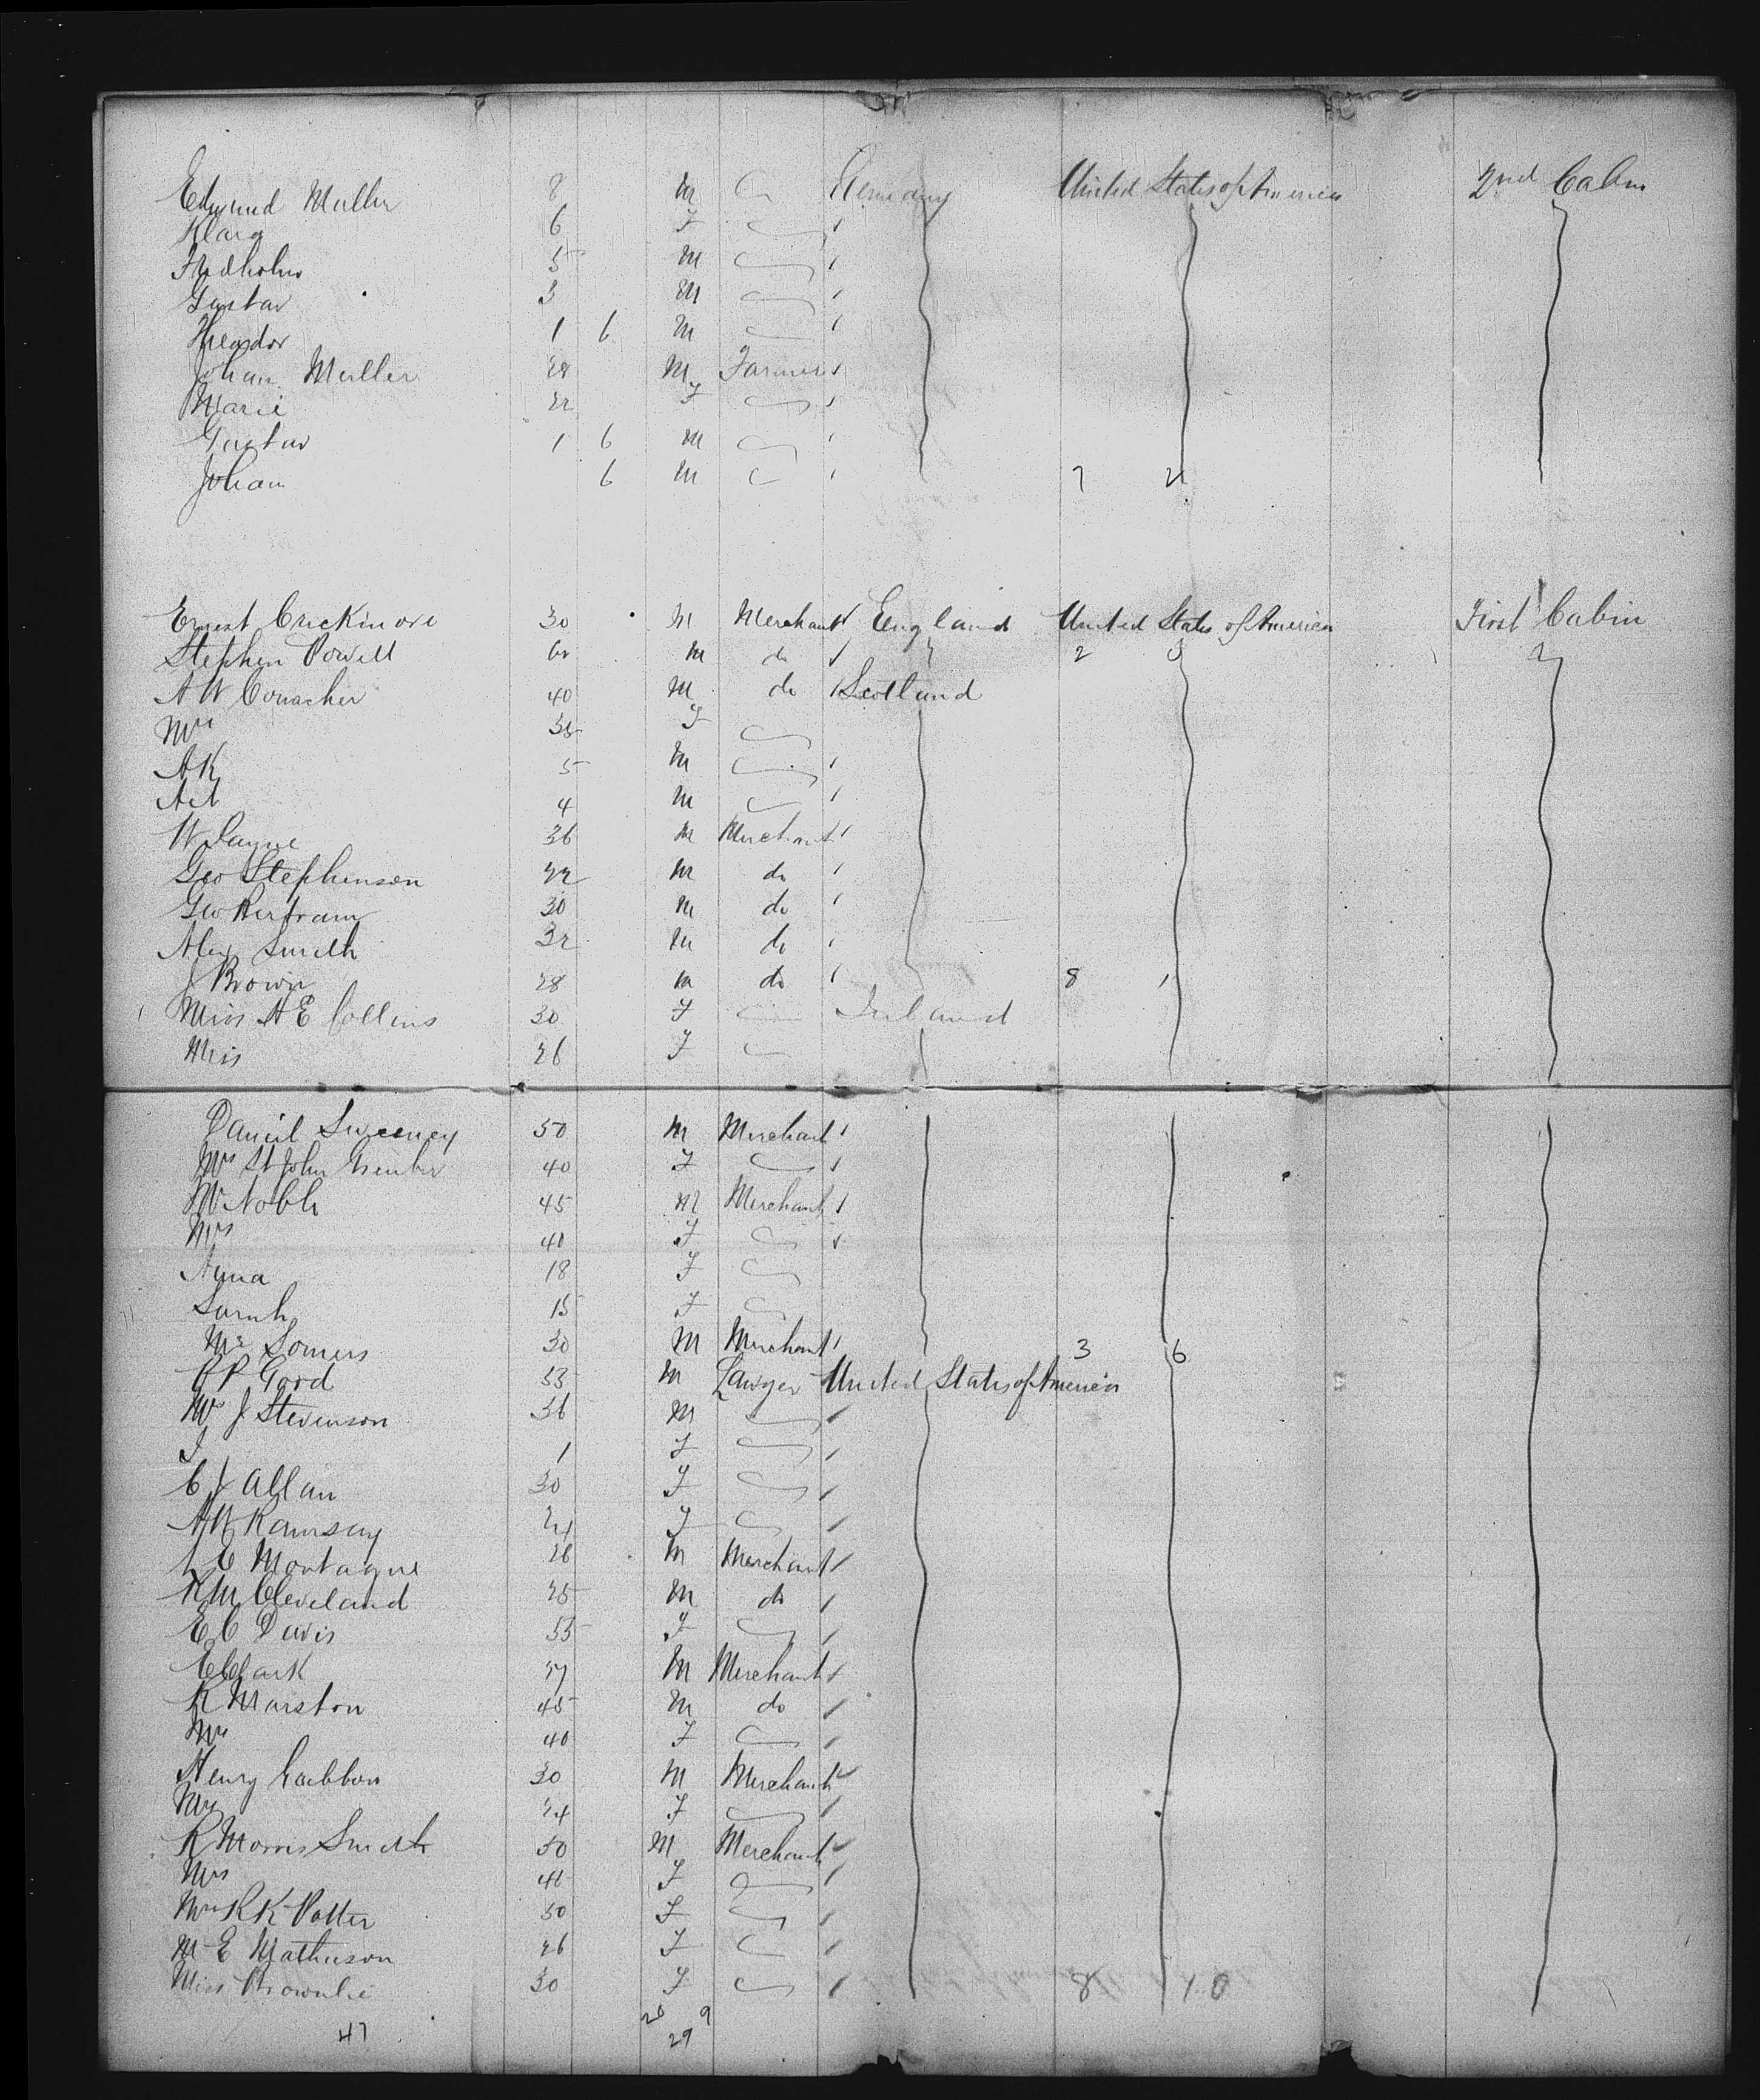 Edmund Muller 8 M Germany United States of America 2nd Cabin
Klara 6 F
5 M
Gustav 3 M
1 6 M
Johan Muller 28 M Farmer
Marie 22 F
Gustav 1 6 M
Johan 6 M 7 2
Ernest 30 M Merchant England United States of America First Cabin
Stephen Powell M do 2
A W Conacher 40 M do Scotland
Mrs 35 F
A K 5 M
4 M
W Payne 36 M Merchant
Geo Stephenson 22 M do
Geo Bertram 30 M do
Alex Smith 32 M do
J Brown 28 M do 8 1
Miss A E Collins 30 F Ireland
Miss 26 F
Daniel Sweeney 50 M Merchant
Mrs St John 40 F
W Noble 45 M Merchant
Mrs 40 F
Anna 18 F
Sarah 15 F
Mr Somers 30 M Merchant 3 6
Good 33 M Lawyer United States of America
J Stevenson 36 M
1 F
C J Allan 30 F
A W Ramsay 24 F
E Montague 26 M Merchant
R M Cleveland 25 M do
E C Davis 35 F
E Clark 27 M Merchant
R Marston 45 M do
Mrs 40 F
Henry 30 M Merchant
Mrs 24 F
R Morris Smith 50 M Merchant
Mrs F
Mrs R K Potter 50 F
M E Mathieson 26 F
Miss Brownlie 30 F 8 10
20 9
47 29